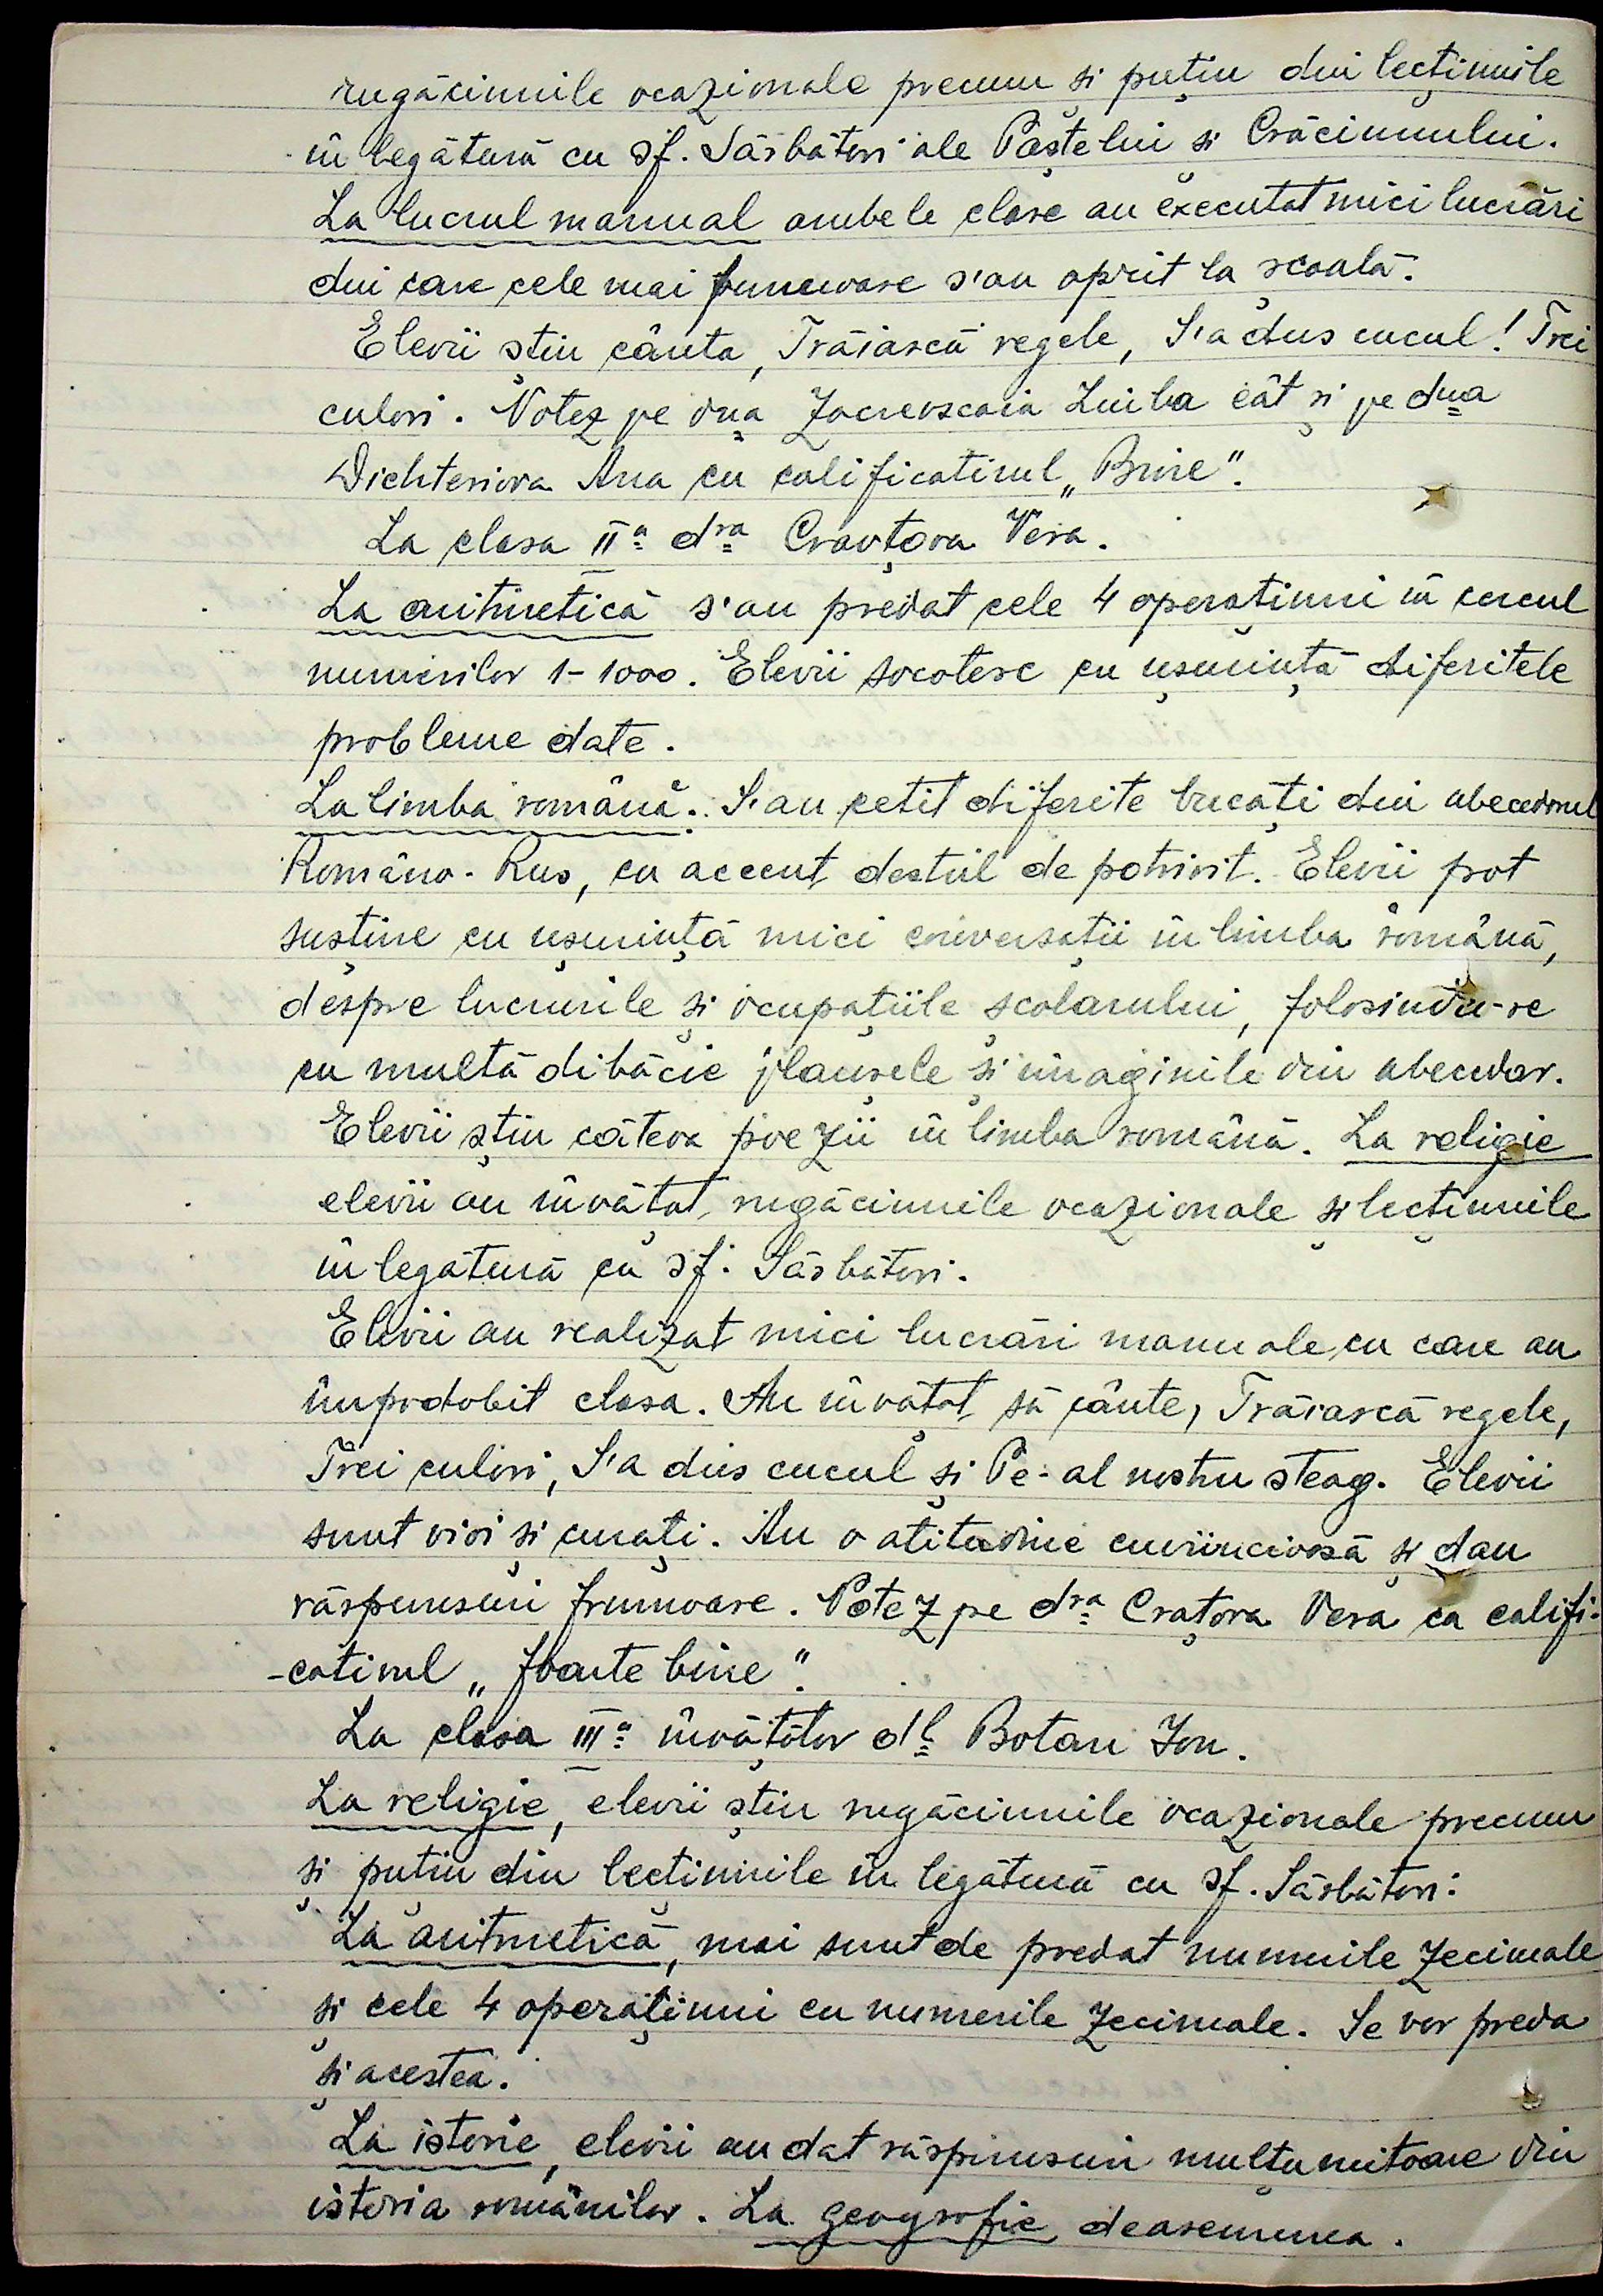 rugăciunile ocazionale precum și puțin din lecțiunile
în legătură cu sf. Sărbători ale Paștelui și Crăciunului.
La lucrul manual ambele clase au executat mici lucrări
din care cele mai frumoase s'au oprit la școală.
Elevii știu cânta, Trăiască regele, S'a dus cucul! Trei
culori. Notez pe dna Zacrevscaia Liuba cât și pe dna
Dichteriova Ana cu calificativul „Bine".
La clasa IIa dra Cravțova Vera.
La aritmetică s'au predat cele 4 operațiuni în cercul
numerilor 1-1000. Elevii socotesc cu ușurință diferitele
probleme date.
La limba română. S'au cetit diferite bucăți din abecedarul
Româno-Rus, cu accent destul de potrivit. Elevii pot
susține cu ușurință mici conversații în limba română,
despre lucrurile și ocupațiile școlarului, folosindu-se
cu multă dibăcie planșele și imaginile din abecedar.
Elevii știu câteva poezii în limba română. La religie
elevii au învățat, rugăciunile ocazionale și lecțiunile
în legătură cu sf. Sărbători.
Elevii au realizat mici lucrări manuale cu care au
împodobit clasa. Au învățat să cânte, Trăiască regele,
Trei culori, S'a dus cucul și Pe-al nostru steag. Elevii
sunt vioi și curați. Au o atitudine cuviincioasă și dau
răspunsuri frumoase. Notez pe dra Crațova Vera cu califi-
-cativul „foarte bine".
La clasa IIIa învățător dl Botan Ion.
La religie, elevii știu rugăciunile ocazionale precum
și puțin din lecțiunile în legătură cu sf. Sărbători.
La aritmetică, mai sunt de predat numerile zecimale
și cele 4 operațiuni cu numerile zecimale. Se vor preda
și acestea.
La istorie, elevii au dat răspunsuri mulțumitoare din
istoria românilor. La geografie deasemenea.